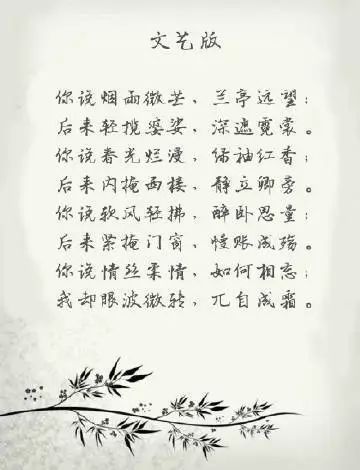 文艺版
你说烟雨微芒，兰亭远望；
后来轻揽婆娑，深遮霓裳。
你说春光烂漫，绿袖红香；
后来内掩西楼，静立卿旁。
你说软风轻拂，醉卧思量；
后来紧掩门窗，慢账成殇。
你说情丝柔情，如何相忘；
我却眼波微转，兀自成霜。